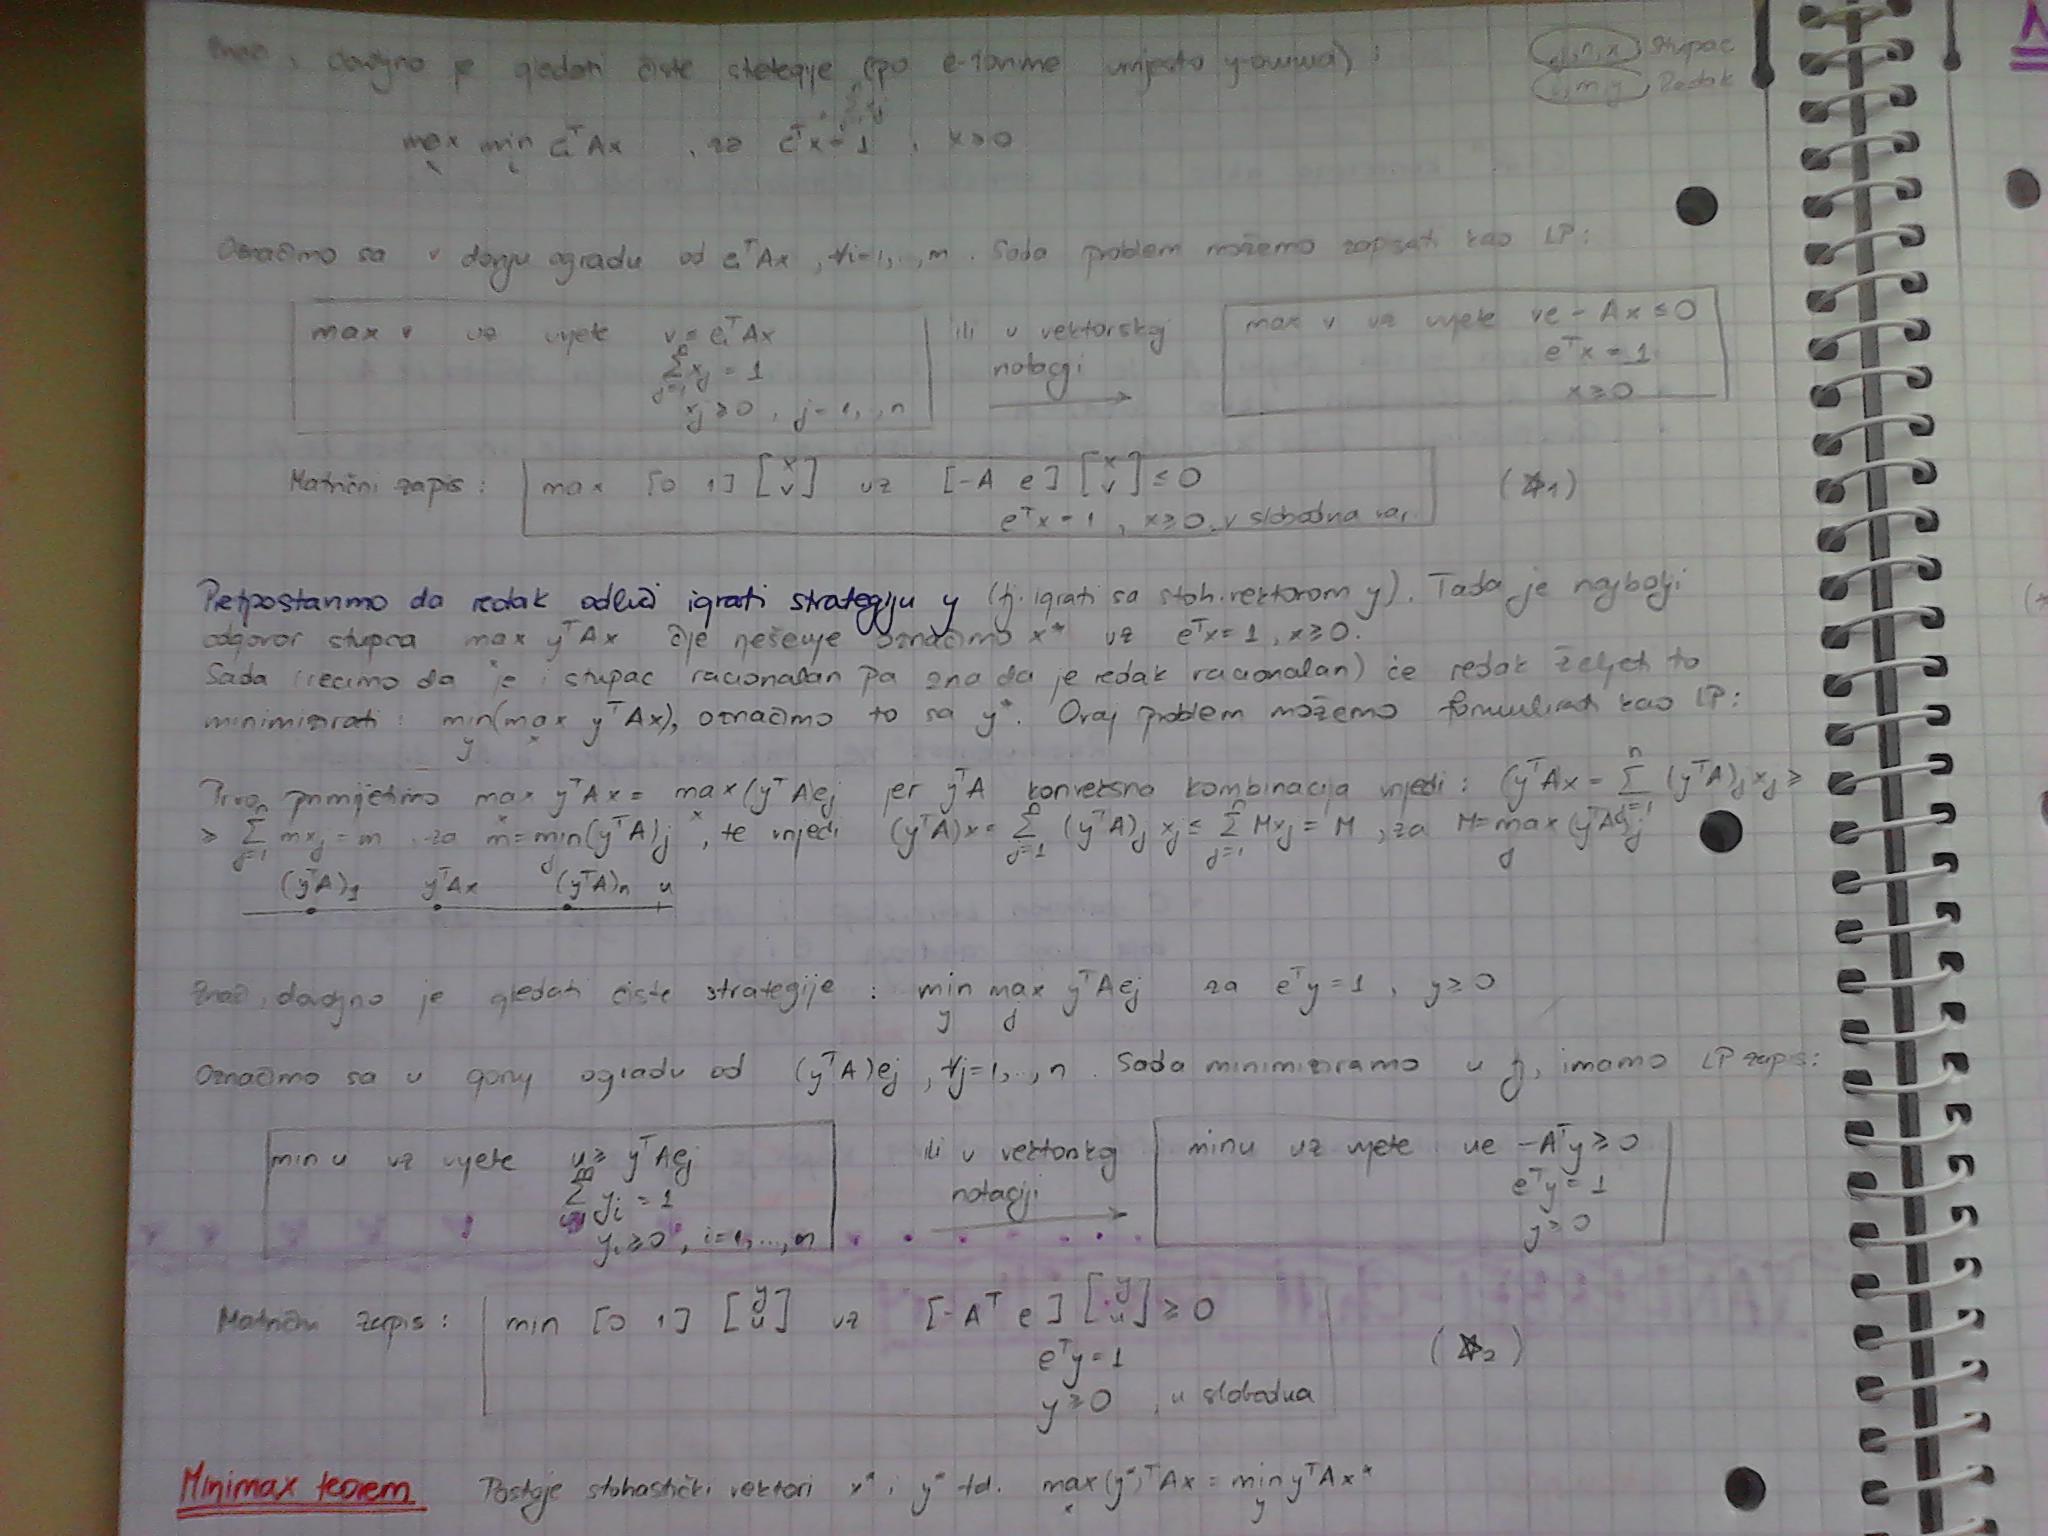 Znači, dovoljno je gledati čiste strategije (po e-ovima umjesto y-ovima):
j, n, x, stupac
i, m, y, redak
max min eᵢᵀAx , za eᵀx = 1 , x ≥ 0
x i
Označimo sa v donju ogradu od eᵢᵀAx, ∀i=1,..,m. Sada problem možemo zapisati kao LP:
max v uz uvjete v ≤ eᵢᵀAx ili u vektorskoj max v uz uvjete ve - Ax ≤ 0
∑ⱼ₌₁ⁿ xⱼ = 1 notaciji eᵀx = 1
xⱼ ≥ 0 , j=1,..,n x ≥ 0
Matrični zapis: max [0 1] [x v] uz [-A e] [x v] ≤ 0 (☆₁)
eᵀx = 1 , x ≥ 0, v slobodna var.
Pretpostavimo da redak odluči igrati strategiju y (tj. igrati sa stoh.vektorom y). Tada je najbolji
odgovor stupca max y ᵀAx čije rješenje označimo x* uz eᵀx = 1, x ≥ 0.
x
Sada (recimo da je i stupac racionalan pa zna da je redak racionalan) će redak željeti to
minimizirati: min(max yᵀAx), označimo to sa y*. Ovaj problem možemo formulirati kao LP:
y x
Prvo, primijetimo max yᵀAx = max(yᵀAeⱼ jer yᵀA konveksna kombinacija vrijedi: (yᵀAx = ∑ⱼ₌₁ⁿ (yᵀA)ⱼ xⱼ ≥
≥ ∑ⱼ₌₁ⁿ mxⱼ = m za m = min(yᵀA)ⱼ , te vrijedi (yᵀA)x = ∑ⱼ₌₁ⁿ (yᵀA)ⱼ xⱼ ≤ ∑ⱼ₌₁ⁿ Mxⱼ = M , za M = max (yᵀA)ⱼ
(yᵀA)₁ yᵀAx (yᵀA)ₙ u
Znači, dovoljno je gledati čiste strategije : min max yᵀAeⱼ za eᵀy = 1 , y ≥ 0
y j
Označimo sa u gornju ogradu od (yᵀA)eⱼ , ∀j=1,..,n. Sada minimiziramo u tj, imamo LP zapis:
min u uz uvjete u ≥ yᵀAeⱼ ili u vektorskoj min u uz uvjete ue - Aᵀy ≥ 0
∑ᵢ₌₁ᵐ yᵢ = 1 notaciji eᵀy = 1
yᵢ ≥ 0 , i=1,...,m y ≥ 0
Matrični zapis: min [0 1] [y u] uz [-Aᵀ e] [y u] ≥ 0
eᵀy = 1 (☆₂)
y ≥ 0 , u slobodna
Minimax teorem Postoje stohastički vektori x* i y* td. max (y*)ᵀAx = min yᵀAx*
x y